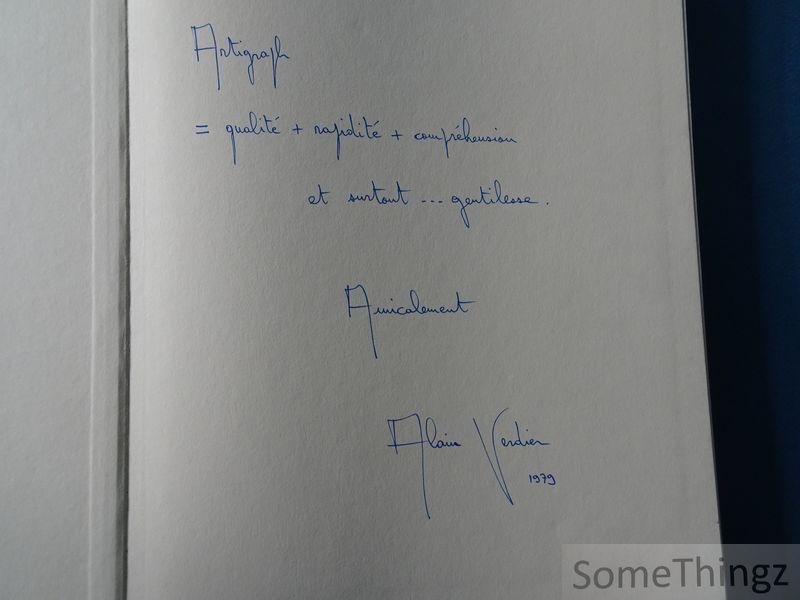 Artigraph
= qualité + rapidité + compréhension
et surtout ... gentilesse.
Amicalement
Alain Verdier
1979
SomeThingz